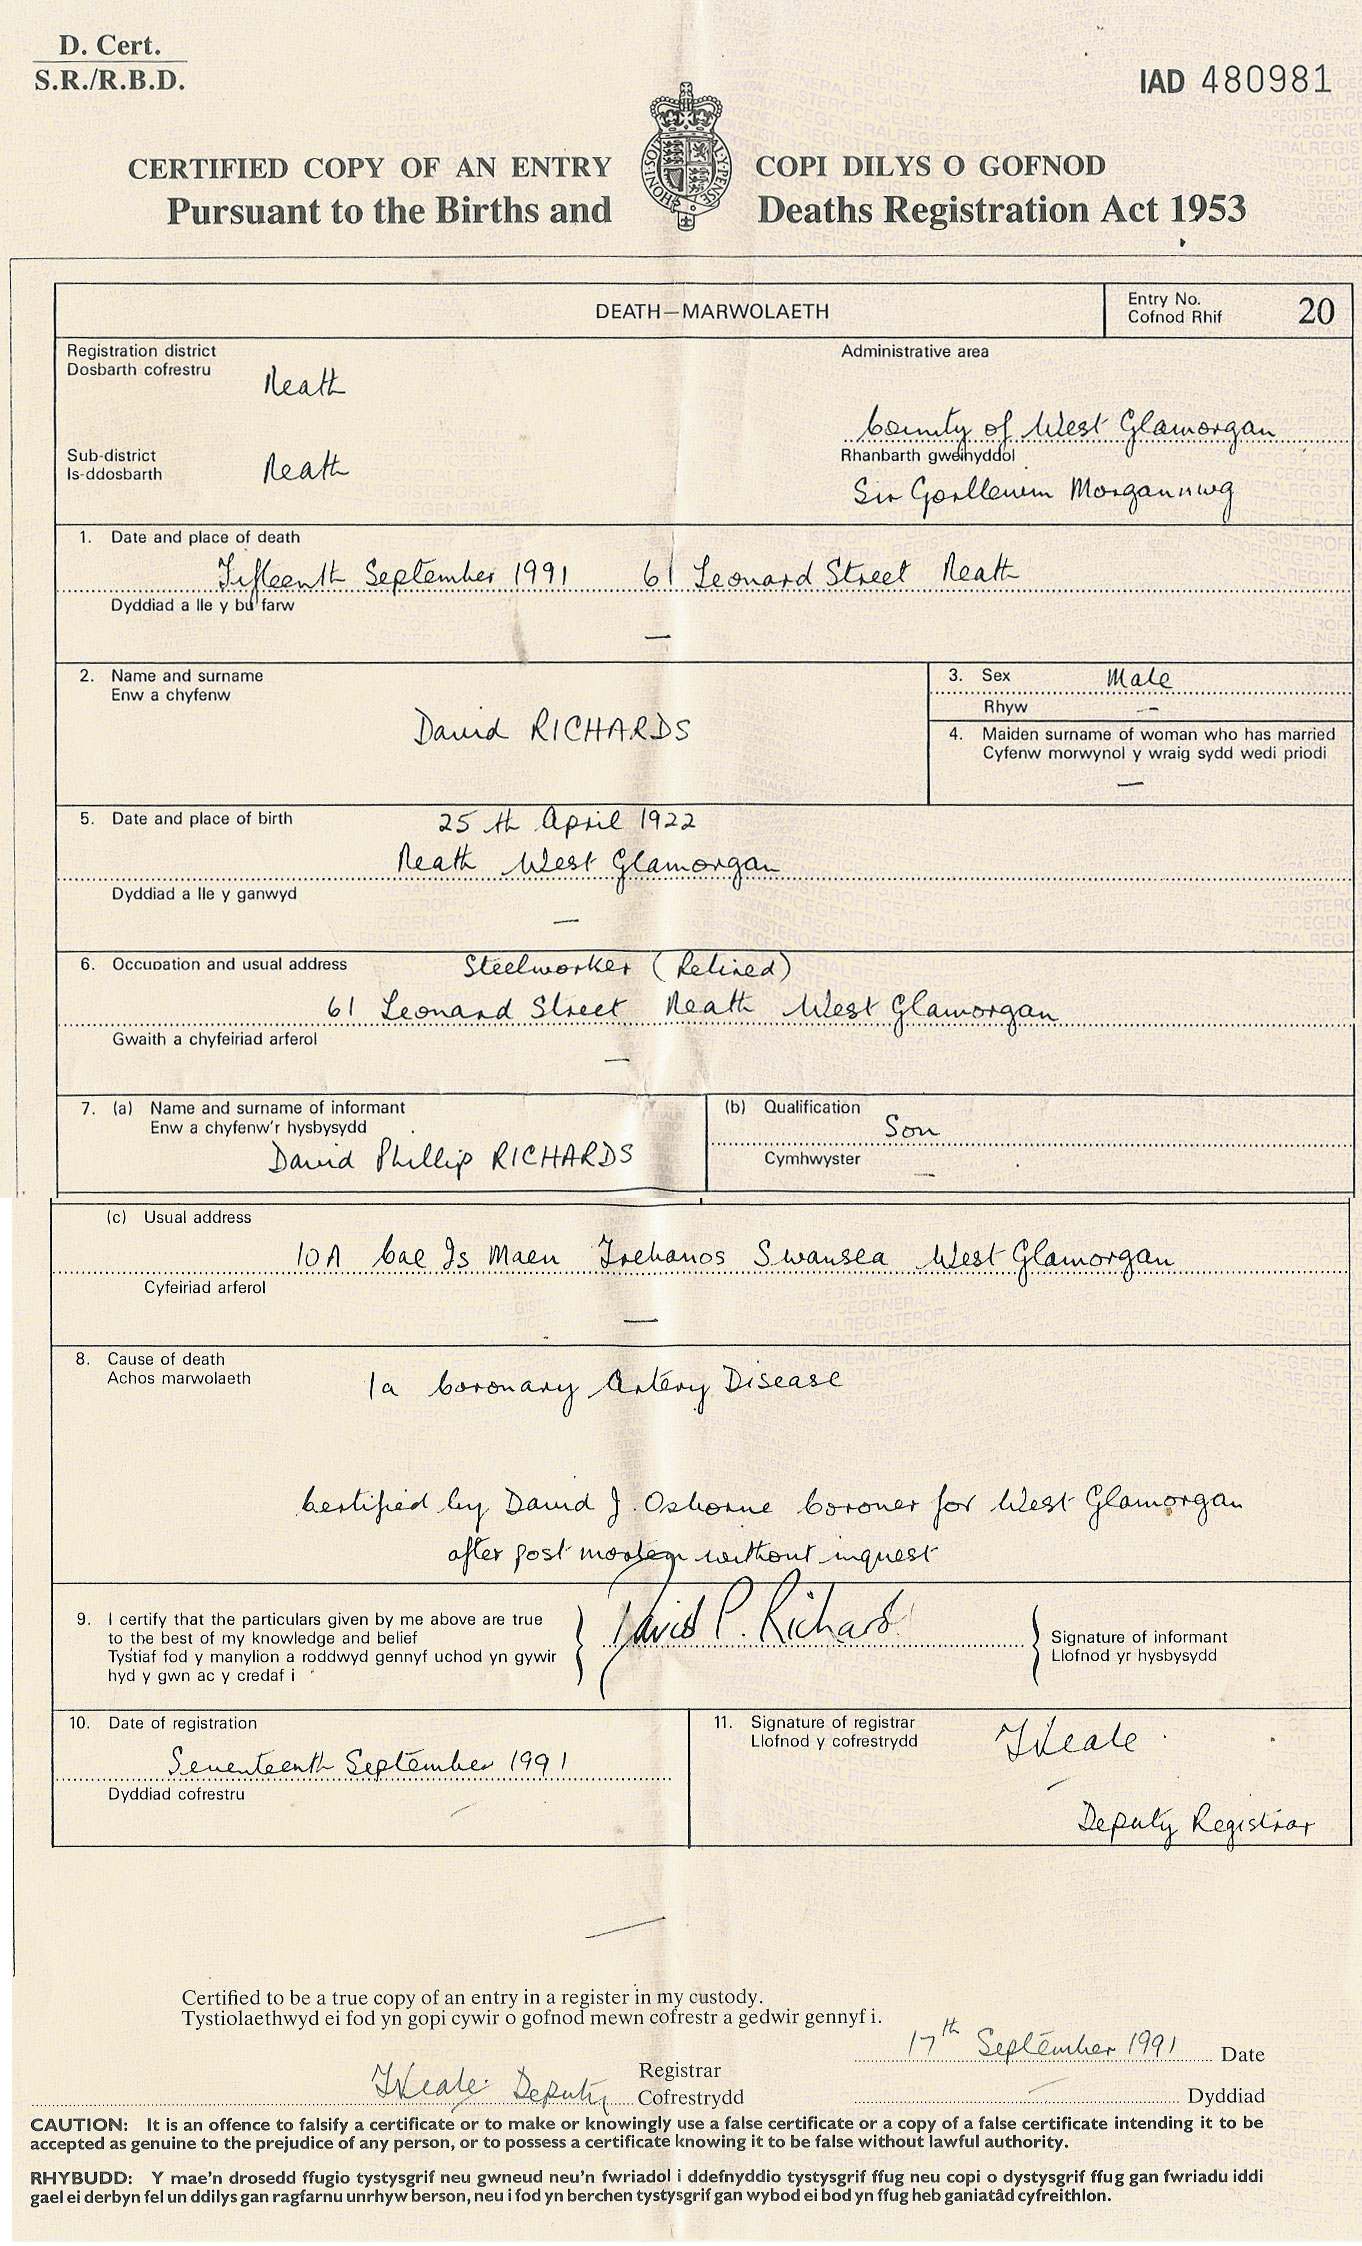 D. Cert.
S.R./R.B.D.
IAD 480981
CERTIFIED COPY OF AN ENTRY
COPI DILYS O GOFNOD
Pursuant to the Births and Deaths Registration Act 1953
DEATH—MARWOLAETH
Entry No.
Cofnod Rhif
20
Registration district
Dosbarth cofrestru
Neath
Administrative area
County of West Glamorgan
Sub-district
Is-ddosbarth
Neath
Rhanbarth gweinyddol
Sir Gorllewin Morgannwg
1. Date and place of death
Fifteenth September 1991 61 Leonard Street Neath
Dyddiad a lle y bu farw
—
2. Name and surname
Enw a chyfenw
David RICHARDS
3. Sex Male
Rhyw —
4. Maiden surname of woman who has married
Cyfenw morwynol y wraig sydd wedi priodi
—
5. Date and place of birth 25th April 1922
Neath West Glamorgan
Dyddiad a lle y ganwyd
—
6. Occupation and usual address Steelworker (Retired)
61 Leonard Street Neath West Glamorgan
Gwaith a chyfeiriad arferol
—
7. (a) Name and surname of informant
Enw a chyfenw'r hysbysydd
David Phillip RICHARDS
(b) Qualification
Son
Cymhwyster
—
(c) Usual address
10A Cae Is Maen Trebanos Swansea West Glamorgan
Cyfeiriad arferol
—
8. Cause of death
Achos marwolaeth
1a Coronary Artery Disease
Certified by David J. Osborne Coroner for West Glamorgan
after post mortem without inquest
9. I certify that the particulars given by me above are true
to the best of my knowledge and belief
Tystiaf fod y manylion a roddwyd gennyf uchod yn gywir
hyd y gwn ac y credaf i
David P. Richards
Signature of informant
Llofnod yr hysbysydd
10. Date of registration
Seventeenth September 1991
Dyddiad cofrestru
11. Signature of registrar
Llofnod y cofrestrydd
Deputy Registrar
Certified to be a true copy of an entry in a register in my custody.
Tystiolaethwyd ei fod yn gopi cywir o gofnod mewn cofrestr a gedwir gennyf i.
17th September 1991 Date
Deputy
Registrar
Cofrestrydd
Dyddiad
CAUTION: It is an offence to falsify a certificate or to make or knowingly use a false certificate or a copy of a false certificate intending it to be
accepted as genuine to the prejudice of any person, or to possess a certificate knowing it to be false without lawful authority.
RHYBUDD: Y mae'n drosedd ffugio tystysgrif neu gwneud neu'n fwriadol i ddefnyddio tystysgrif ffug neu copi o dystysgrif ffug gan fwriadu iddi
gael ei derbyn fel un ddilys gan ragfarnu unrhyw berson, neu i fod yn berchen tystysgrif gan wybod ei bod yn ffug heb ganiatâd cyfreithlon.